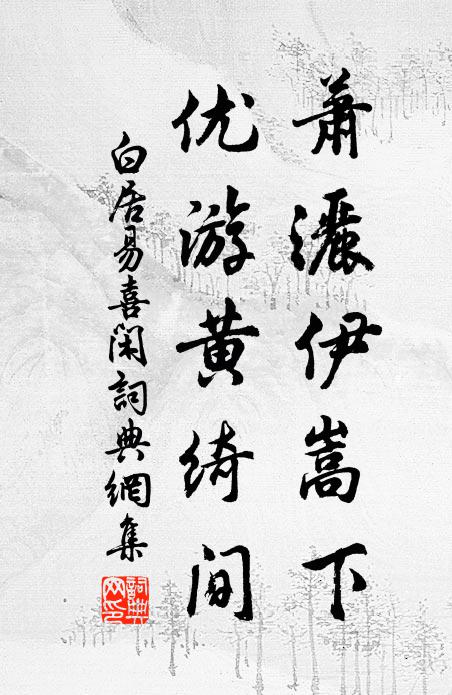 萧灑伊嵩下
优游黄绮间
白居易喜闲詞典網集
詞典网印